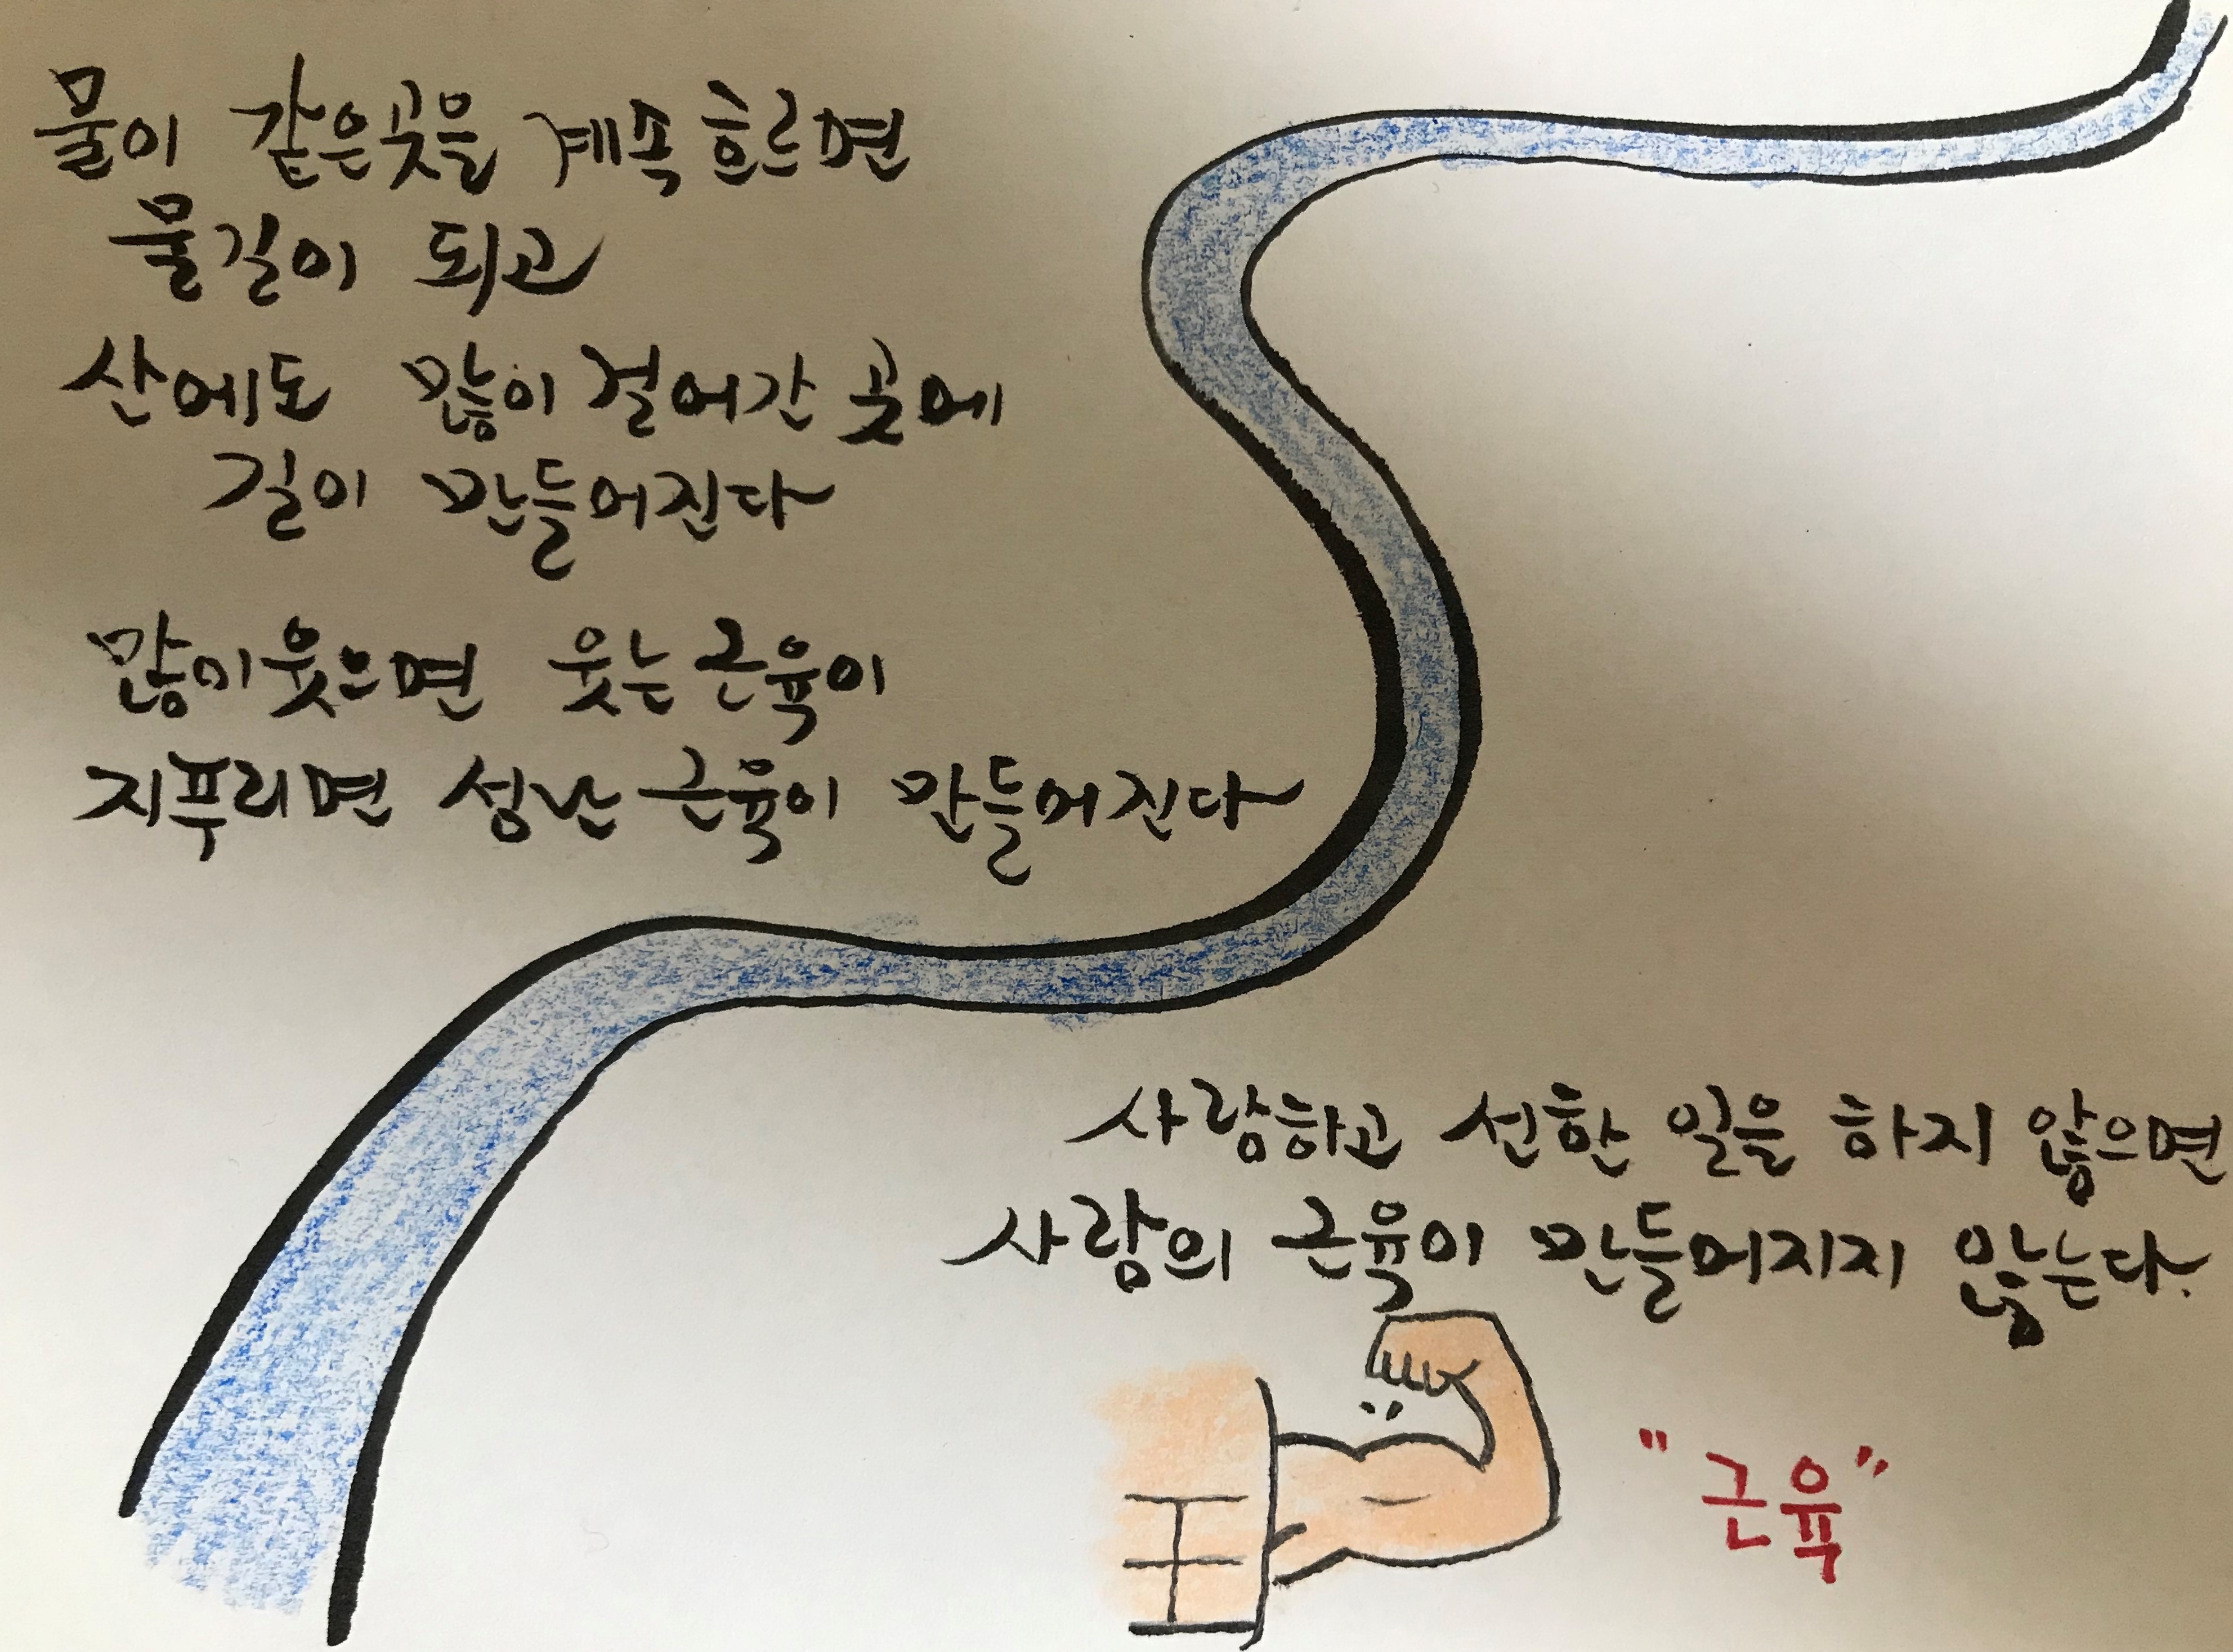 물이 같은곳을 계속 흐르면
물길이 되고
산에도 많이 걸어간 곳에
길이 만들어진다
많이 웃으면 웃는 근육이
지푸리면 성난 근육이 만들어진다
사랑하고 선한 일을 하지 않으면
사랑의 근육이 만들어지지 않는다.
"근육"